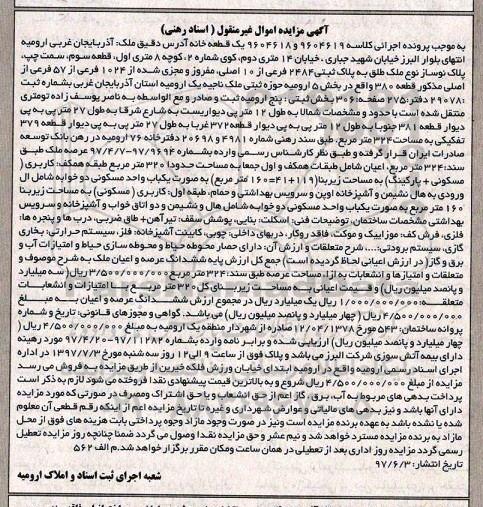 آگهی مزایده اموال غیرمنقول ( اسناد رهنی )
به موجب پرونده اجرائی کلاسه ۹۶۰۴۶۱۹ و ۹۶۰۴۶۱۸ یک قطعه خانه آدرس دقیق ملک: آذربایجان غربی ارومیه
انتهای بلوار البرز خیابان شهید جباری ، خیابان ۱۴ متری دوم، کوی شماره ۲، کوچه ۸ متری اول، قطعه سوم، سمت چپ،
پلاک نوساز نوع ملک طلق به پلاک ثبتی ۲۴۸۴ فرعی از ۱۰ اصلی، مفروز و مجزی شده از ۱۰۲۴ فرعی از ۵۷ فرعی از
اصلی مذکور قطعه ۳۸۰ واقع در بخش ۵ ارومیه حوزه ثبتی ملک ناحیه یک ارومیه استان آذربایجان غربی بشماره ثبت
۲۹۰۷۸: دفتر: ۲۷۵ صفحه ۳۰۶ بخش ثبتی : پنج ارومیه ثبت و صادر و مع الواسطه به ناصر یوسف زاده تومتری
منتقل شده است با حدود و مشخصات شمالا به طول ۱۲ متر پی دیواریست به شارع شرقا به طول ۲۷ متر پی به پی
دیوار قطعه ۳۸۱ جنوبا به طول ۱۲ متر پی به پی دیوار قطعه ۳۷۲ غربا به طول ۲۷ متر پی به پی دیوار قطعه ۳۷۹
تفکیکی به مساحت ۳۲۴ متر مربع، طبق سند رهنی شماره ۴۹۸۱ و ۲۰۹۸ دفترخانه ۷۶ ارومیه در رهن بانک توسعه
صادرات ایران قرار گرفته و طبق نظر کارشناس رسمی وارده بشماره ۹۷۹۶۹۴-۹۷/۴/۷ عرصه ملک طبق
سند: ۳۲۴ متر مربع، اعیان شامل طبقات همکف و اول جمعا به مساحت حدودا ۳۲۰ متر مربع طبقه همکف: کاربری (
مسکونی + پارکینگ) به مساحت زیربنا (۱۱۹+۴۱=۱۶۰ متر مربع) به صورت یکباب واحد مسکونی دو خوابه شامل ال
ورودی به هال نشیمن و آشپزخانه اوپن و سرویس بهداشتی و حمام، طبقه اول: کاربری ( مسکونی) به مساحت زیربنا
۱۶۰ متر مربع به صورت یکباب واحد مسکونی دو خوابه شامل هال و نشیمن و دو اتاق خواب و آشپزخانه و سرویس
بهداشتی مشخصات ساختمان، توضیحات فنی: اسکلت: بنایی، پوشش سقف: تیرآهن+ طاق ضربی، درب ها و پنجره ها:
فلزی، فرش کف: موزاییک و موکت، فاقد روکار، دربهای داخلی: چوبی، کابینت آشپزخانه: فلز، سیستم حرارتی: بخاری
گازی، سیستم برودتی:...، شرح متعلقات و ارزش آن: دارای حصار محوطه حیاط و محوطه سازی حیاط و امتیازات آب و
برق و گاز( در ارزش اعیانی لحاظ گردیده است) جمع کل ارزش پایه ششدانگ عرصه و اعیان ملک به شرح موصوف و
متعلقات و امتیازها و انشعابات به ازا، مساحت عرصه طبق سند: ۳۲۴ متر مربع ۳/۵۰۰/۰۰۰/۰۰۰ ریال( سه میلیارد
و پانصد میلیون ریال) و قیمت اعیانی به مساحت زیر بنای کل ۳۲۰ متر مربع با امتیازات و انشعابات
متعلقه ۱/۰۰۰/۰۰۰/۰۰۰ ریال یک میلیارد ریال در مجموع ارزش ششدانگ عرصه و اعیان به مبلغ
۴/۵۰۰/۰۰۰/۰۰۰ ریال (چهار میلیارد و پانصد میلیون ریال) می باشد. گواهی و مجوزهای قانونی: تاریخ و شماره
پروانه ساختمان: ۵۴۳ مورخ ۱۲/۰۴/۱۳۷۸ صادره از شهردار منطقه یک ارومیه به مبلغ ۴/۵۰۰/۰۰۰/۰۰۰ ریال (
چهار میلیارد و پانصد میلیون ریال) ارزیابی شده و برابر نامه وارده بشماره ۹۷/۱۱۲۸۲-۹۷/۴/۲۰ مورد رهینه
دارای بیمه آتش سوزی شرکت البرز می باشد و پلاک فوق از ساعت ۹ الی ۱۲ روز سه شنبه مورخ ۱۳۹۷/۷/۳ در اداره
اجرای اسناد رسمی ارومیه واقع در ارومیه ابتدای خیابان ورزش فلکه خیرین از طریق مزایده به فروش می رسد
مزایده از مبلغ ۴/۵۰۰/۰۰۰/۰۰۰ ریال شروع و به بالاترین قیمت پیشنهادی نقدا فروخته می شود لازم به ذکر است
پرداخت بدهی های مربوط به آب ، برق ، گاز اعم از حق انشعاب و یا حق اشتراک و مصرف در صورتی که مورد مزایده
دارای آنها باشد و نیز بدهی های مالیاتی و عوارض شهرداری و غیره تا تاریخ مزایده اعم از اینکه رقم قطعی آن معلوم
شده یا نشده باشد به عهده برنده مزایده است ونیز در صورت وجود مازاد وجوه پرداختی بابت هزینه های فوق از محل
مازاد به برنده مزایده مسترد خواهد شد و نیم عشر و حق مزایده نقدا وصول می گردد ضمنا چنانچه روز مزایده تعطیل
رسمی گردد مزایده روز اداری بعد از تعطیلی در همان ساعت ومکان مقرر برگزار خواهد شد. م الف ۵۶۲
تاریخ انتشار: ۹۷/۶/۳
شعبه اجرای ثبت اسناد و املاک ارومیه